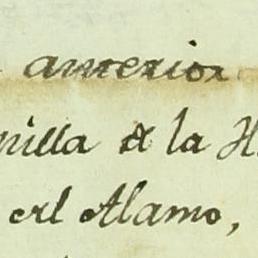 anterior
nilla de la H
en el Alamo,